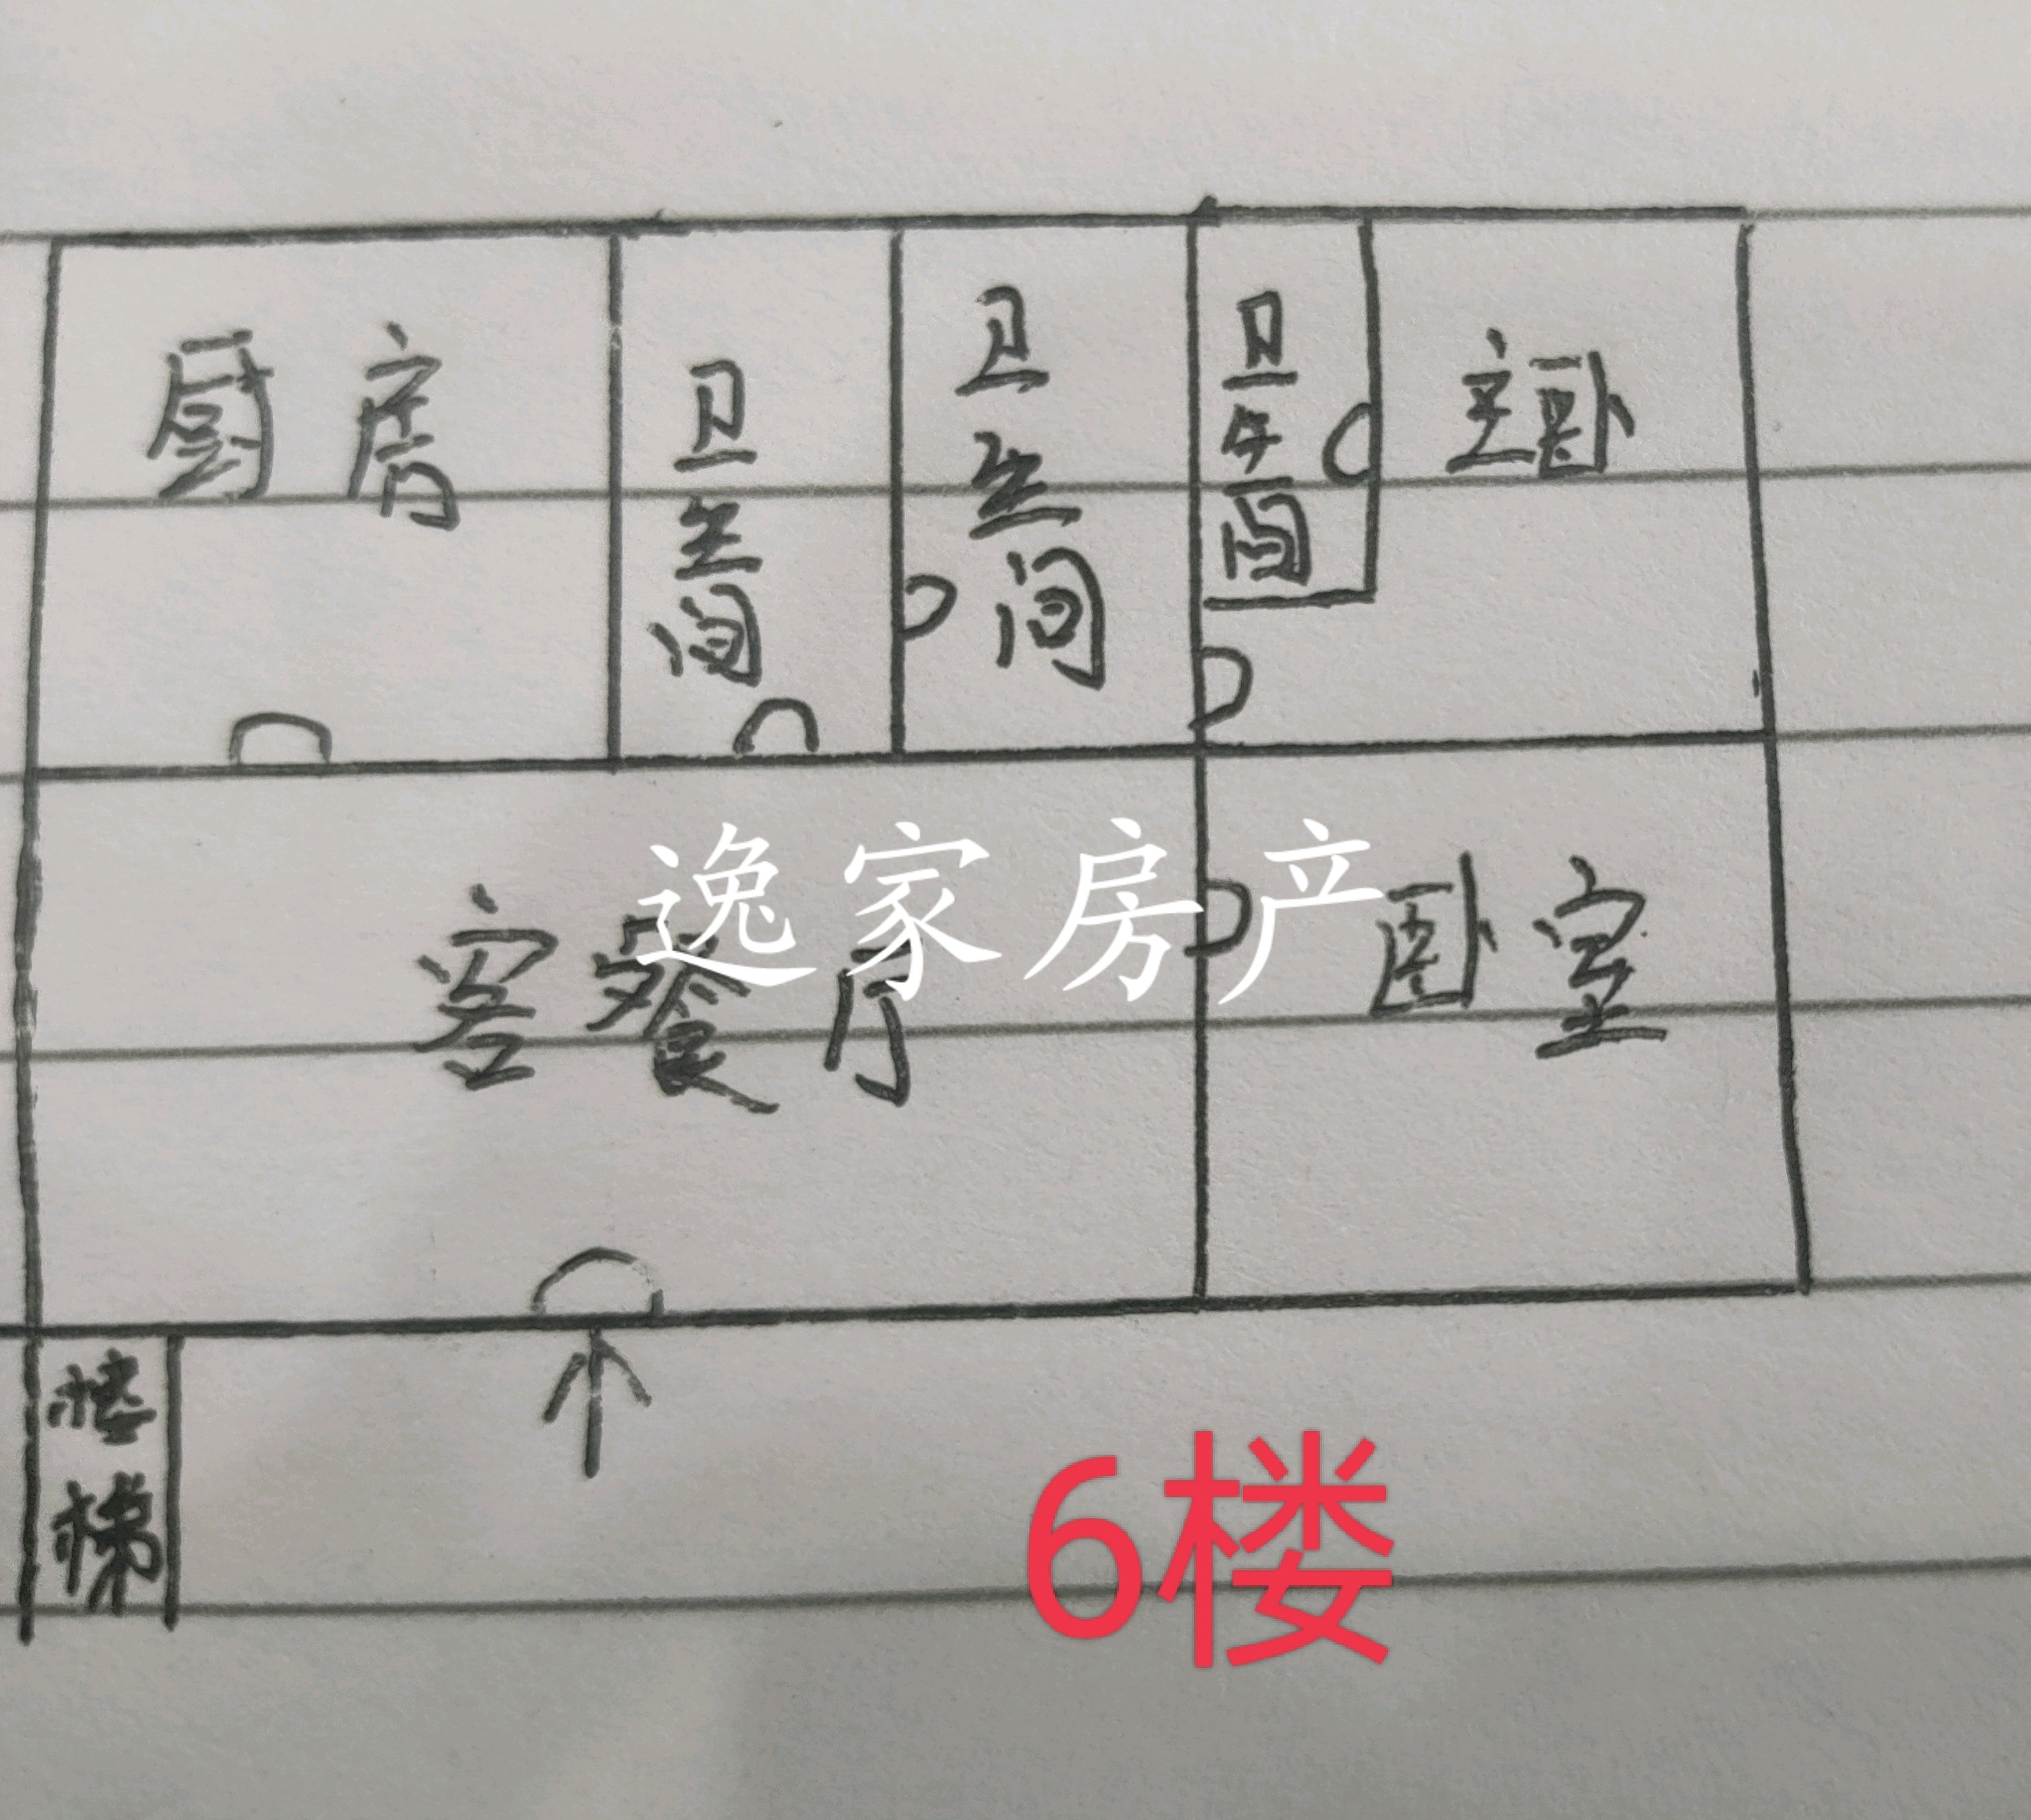 厨房
卫生间
卫生间
卫生间
主卧
逸家房产
客餐厅
卧室
楼梯
6楼